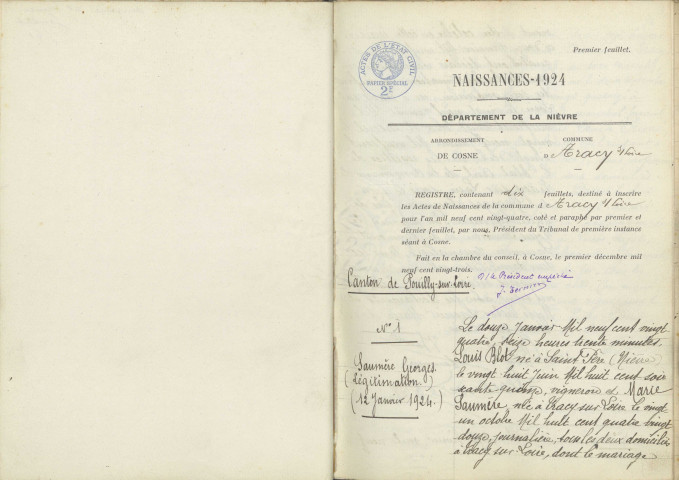 Premier feuillet.
ACTES DE L'ÉTAT CIVIL
PAPIER SPÉCIAL
2F
NAISSANCES-1924
DÉPARTEMENT DE LA NIÈVRE
ARRONDISSEMENT
DE COSNE
COMMUNE
D Tracy s/Loire
REGISTRE, contenant dix feuillets, destiné à inscrire
les Actes de Naissances de la commune d Tracy s/Loire
pour l'an mil neuf cent vingt-quatre, coté et paraphé par premier et
dernier feuillet, par nous, Président du Tribunal de première instance
séant à Cosne.
Fait en la chambre du conseil, à Cosne, le premier décembre mil
neuf cent vingt-trois.
Président
Canton de Pouilly-sur-Loire
N° 1
Saumère Georges.
(Légitimation.)
(12 Janvier 1924.)
Le douze Janvier Mil neuf cent vingt
quatre, seize heures trente minutes.
Louis Blot, né à Saint Père (Nièvre)
le vingt huit Juin Mil huit cent soix
ante quinze, vigneron et Marie
Saumère née à Tracy sur Loire le vingt
un octobre Mil huit cent quatre vingt
douze, journalière, tous les deux domiciliés
à Tracy sur Loire, dont le mariage